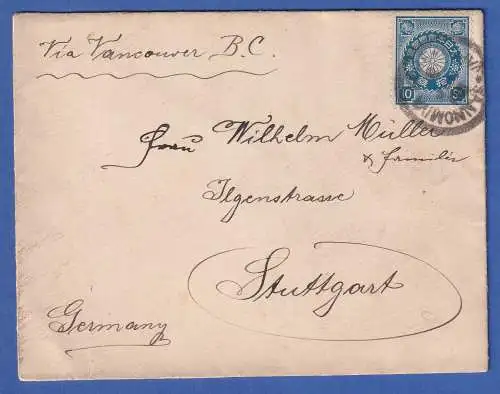 Via Vancouver B.C.
10 Sn
SANNOMIYA
Frau Wilhelm Müller
& familie
Ilgenstrasse
Stuttgart
Germany